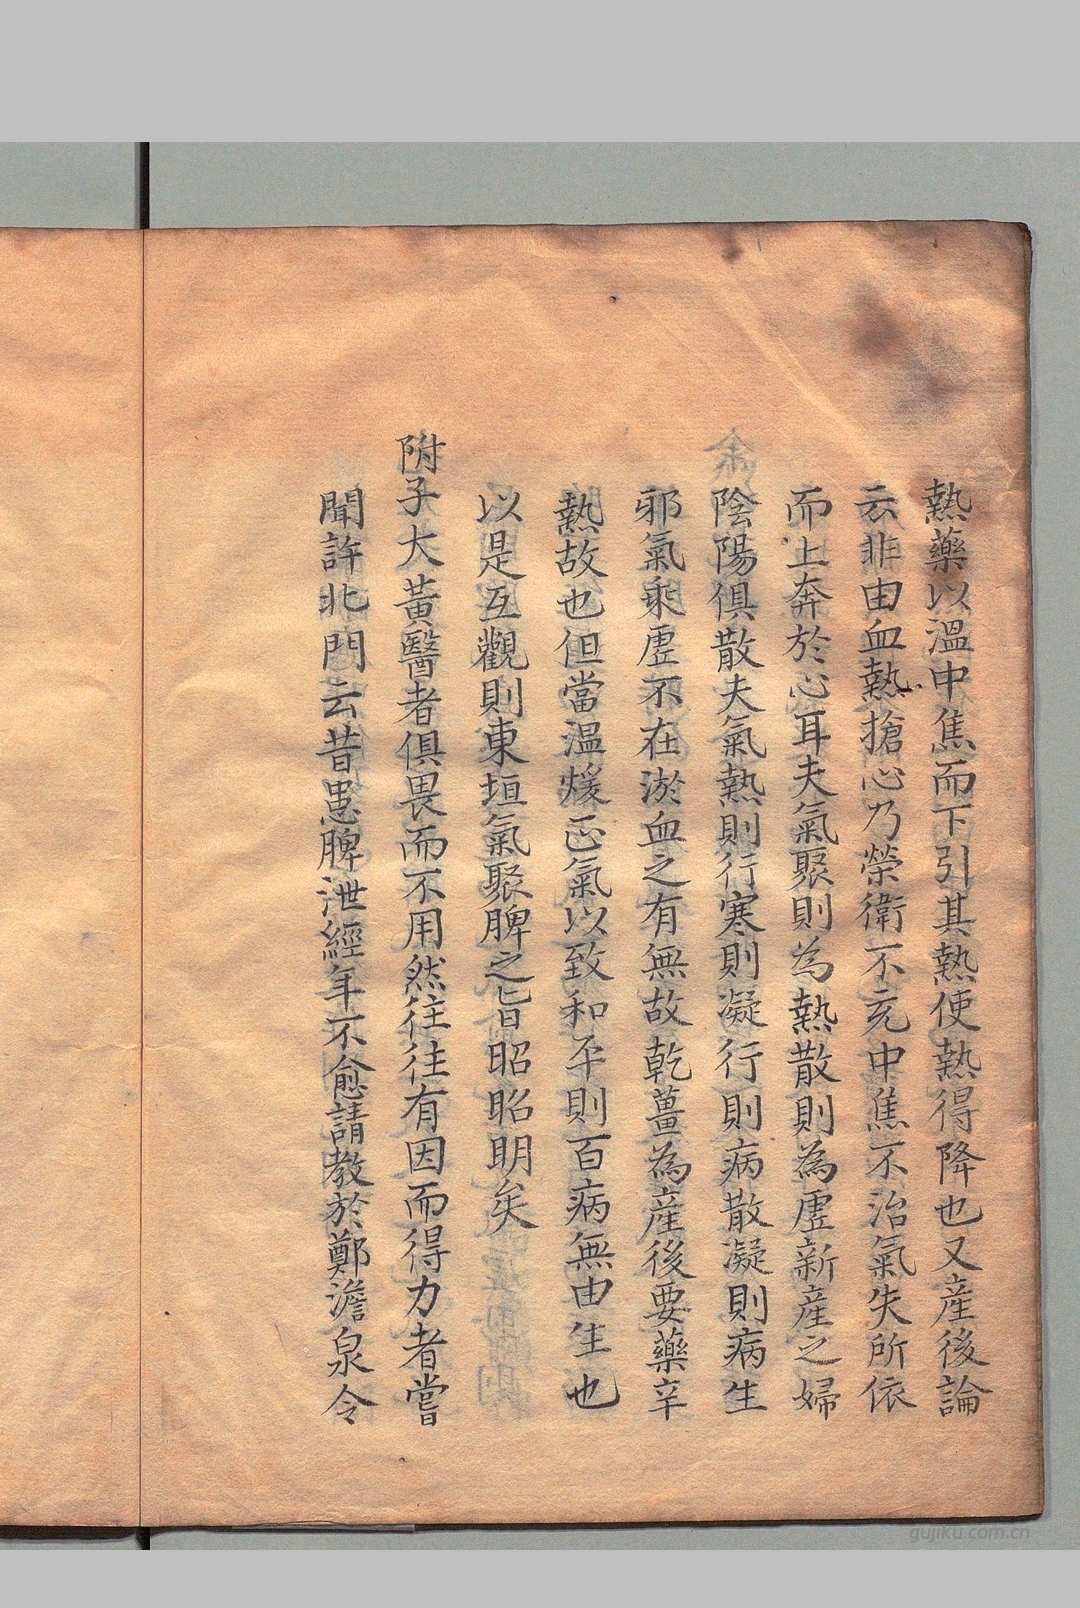 熱藥以溫中焦而下引其熱使熱得降也又産後論
云非由血熱搶心乃榮衛不充中焦不治氣失所依
而上奔於心耳夫氣聚則為熱散則為虛新産之婦
陰陽俱散夫氣熱則行寒則凝行則病散凝則病生
邪氣乘虛不在淤血之有無故乾薑為産後要藥辛
熱故也但當溫煖正氣以致和平則百病無由生也
以是互觀則東垣氣聚脾之旨昭昭明矣
附子大黃醫者俱畏而不用然往往有因而得力者嘗
聞許北門云昔患脾泄經年不愈請教於鄭澹泉令
gujiku.com.cn